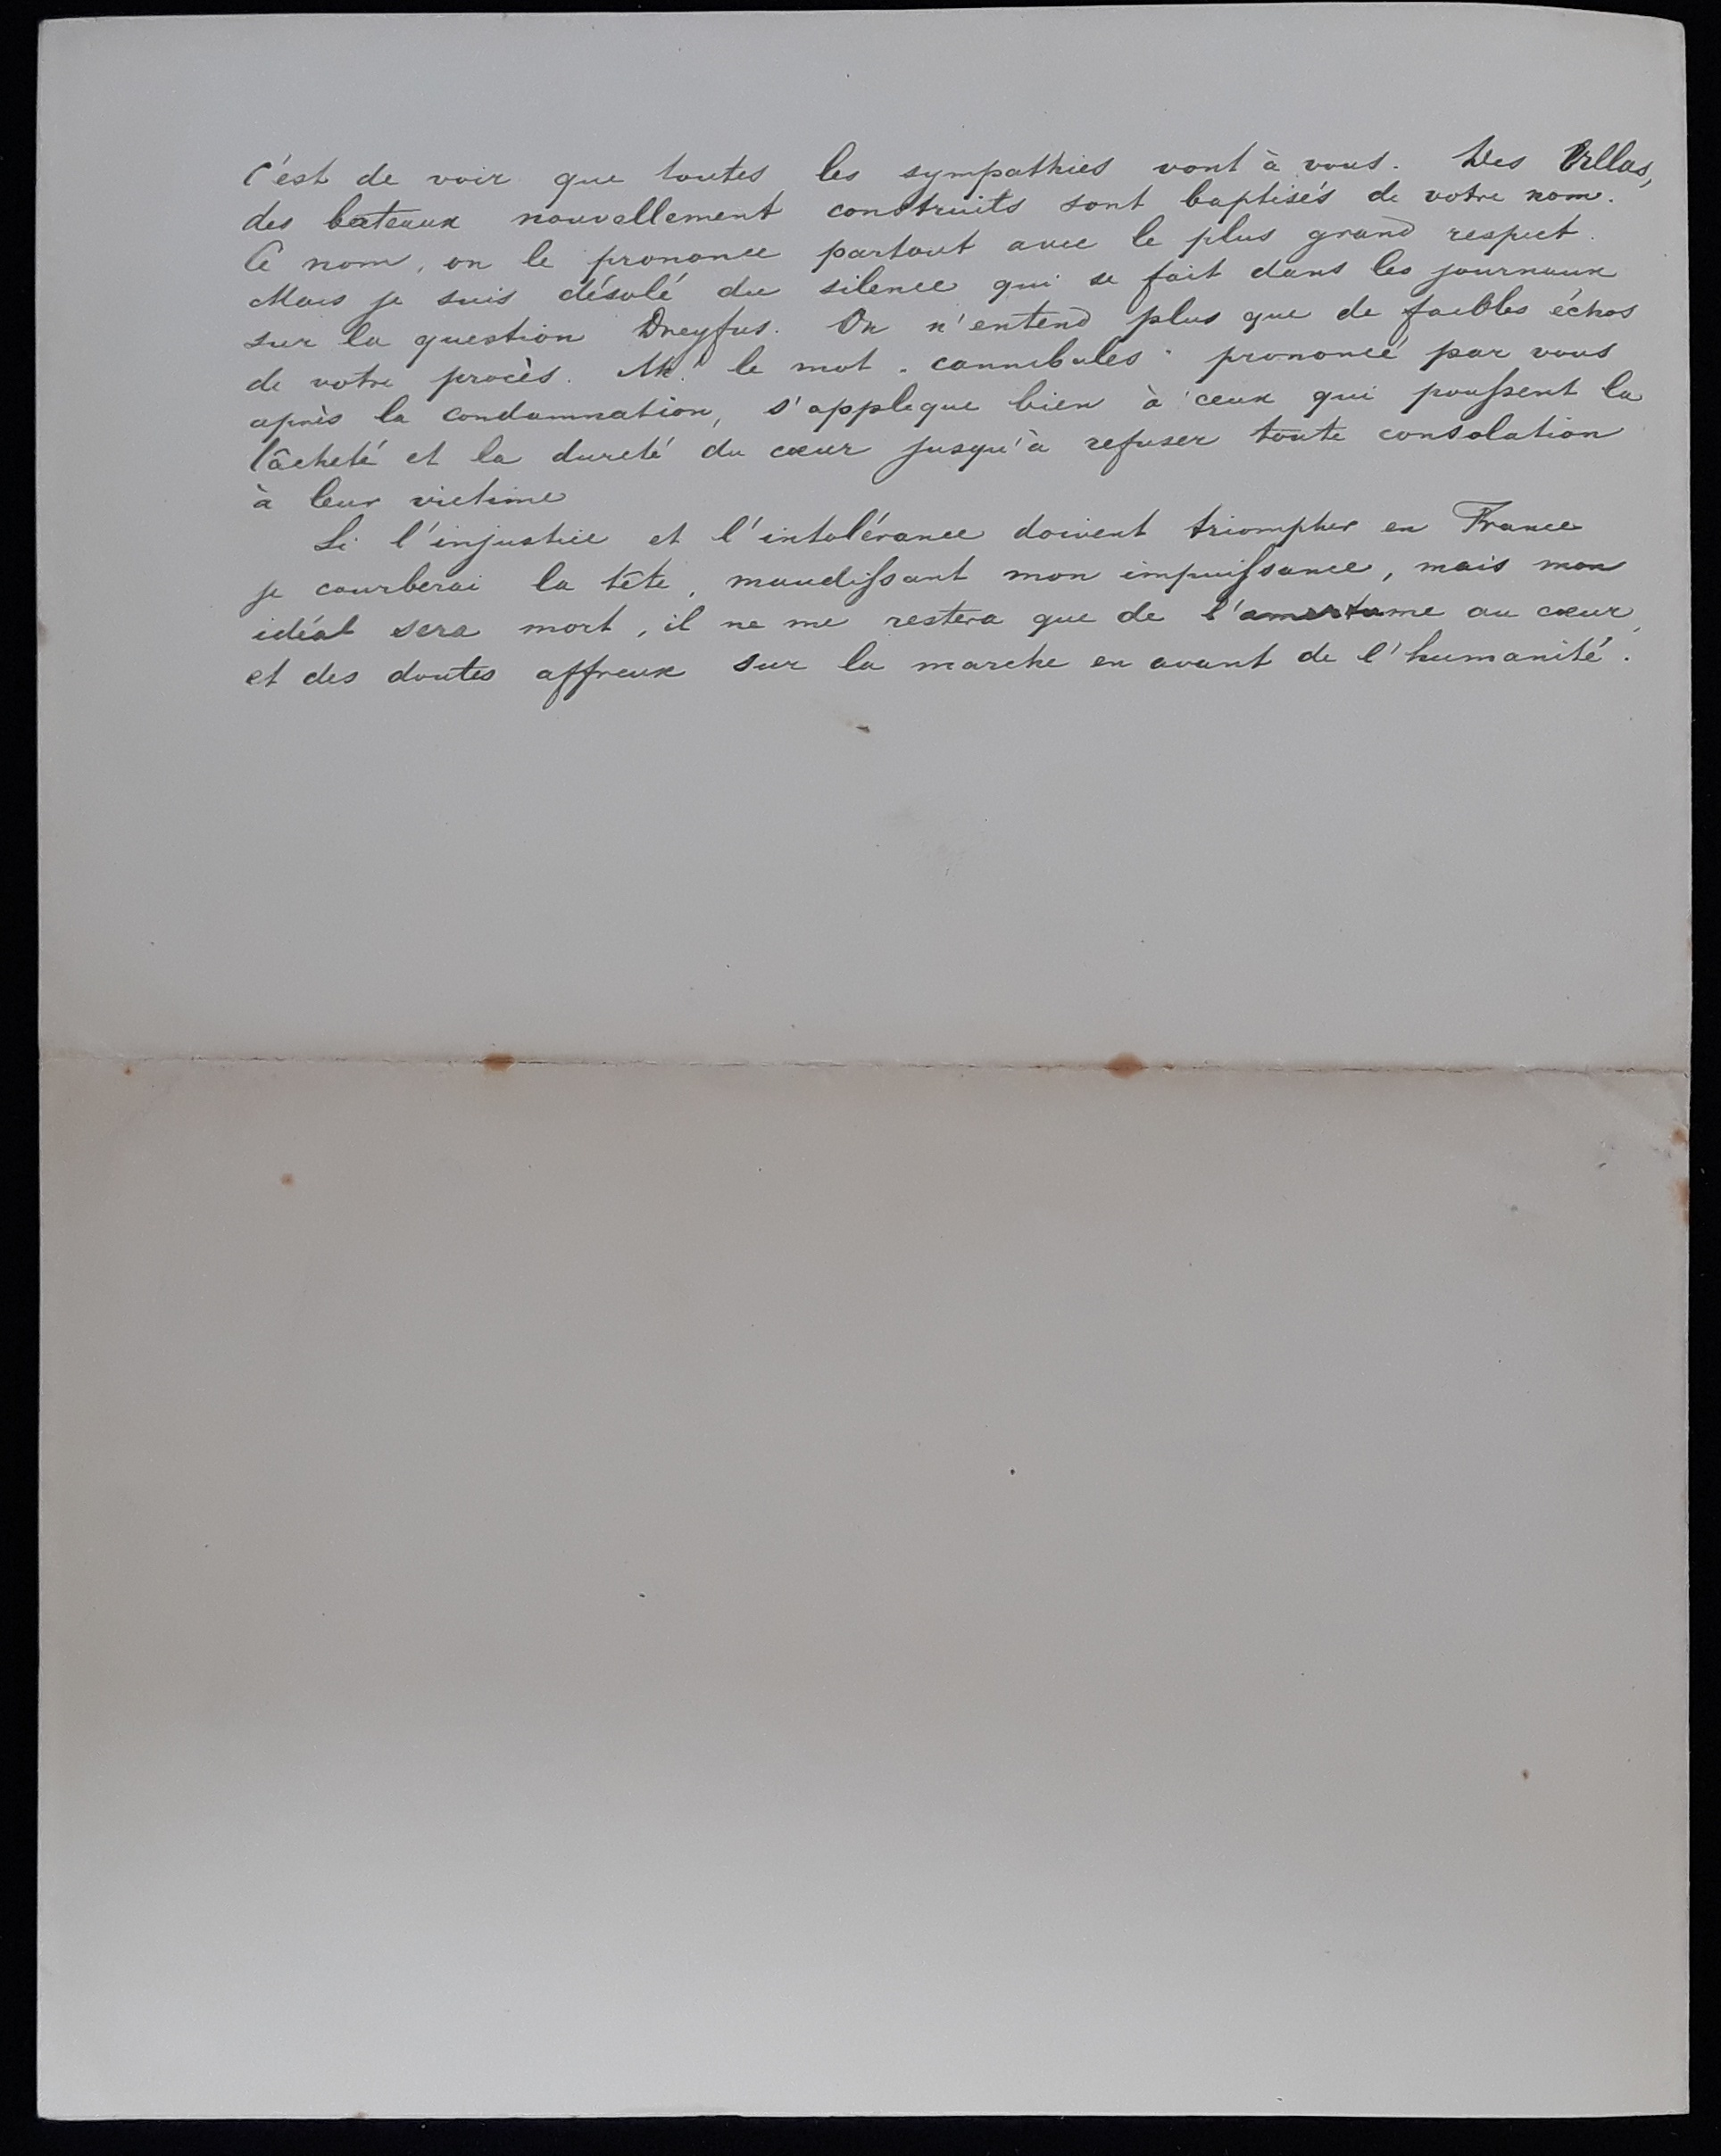 C'est de voir que toutes les sympathies vont à vous. Des Villas,
des bateaux nouvellement construits sont baptisés de votre nom.
Ce nom, on le prononce partout avec le plus grand respect.
Mais je suis désolé du silence qui se fait dans les journaux
sur la question Dreyfus. On n'entend plus que de faibles échos
de votre procès. Ah! le mot "cannibales" prononcé par vous
après la condamnation, s'applique bien à ceux qui poussent la
lâcheté et la dureté du cœur jusqu'à refuser toute consolation
à leur victime
Si l'injustice et l'intolérance doivent triompher en France
je courberai la tête, maudissant mon impuissance, mais mon
idéal sera mort, il ne me restera que de l'amertume au cœur,
et des doutes affreux sur la marche en avant de l'humanité.